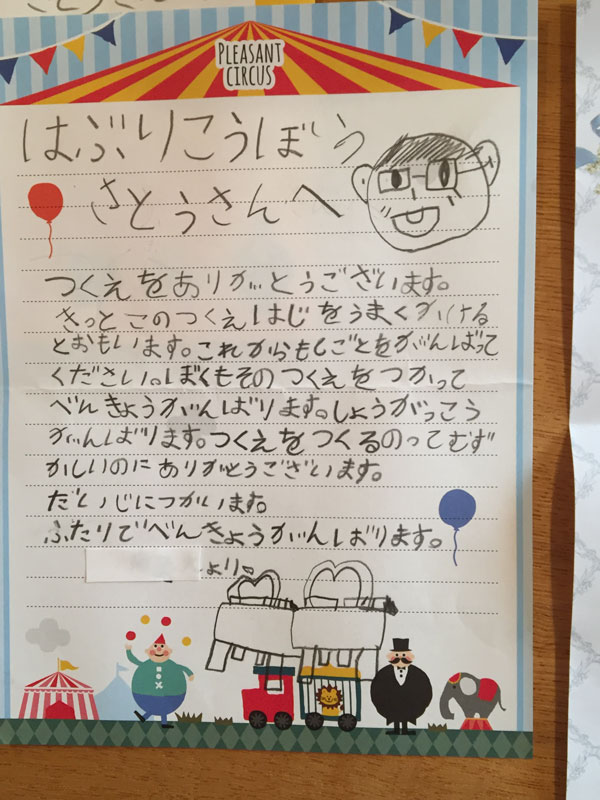 PLEASANT
CIRCUS
はぶりこうぼう
さとうさんへ
つくえをありがとうございます。
きっとこのつくえはじをうまくかける
とおもいます。これからもしごとをがんばって
ください。ぼくもそのつくえをつかって
べんきょうがんばります。しょうがっこう
がんばります。つくえをつくるのってむず
かしいのにありがとうございます。
だいじにつかいます。
ふたりでべんきょうがんばります。
より。